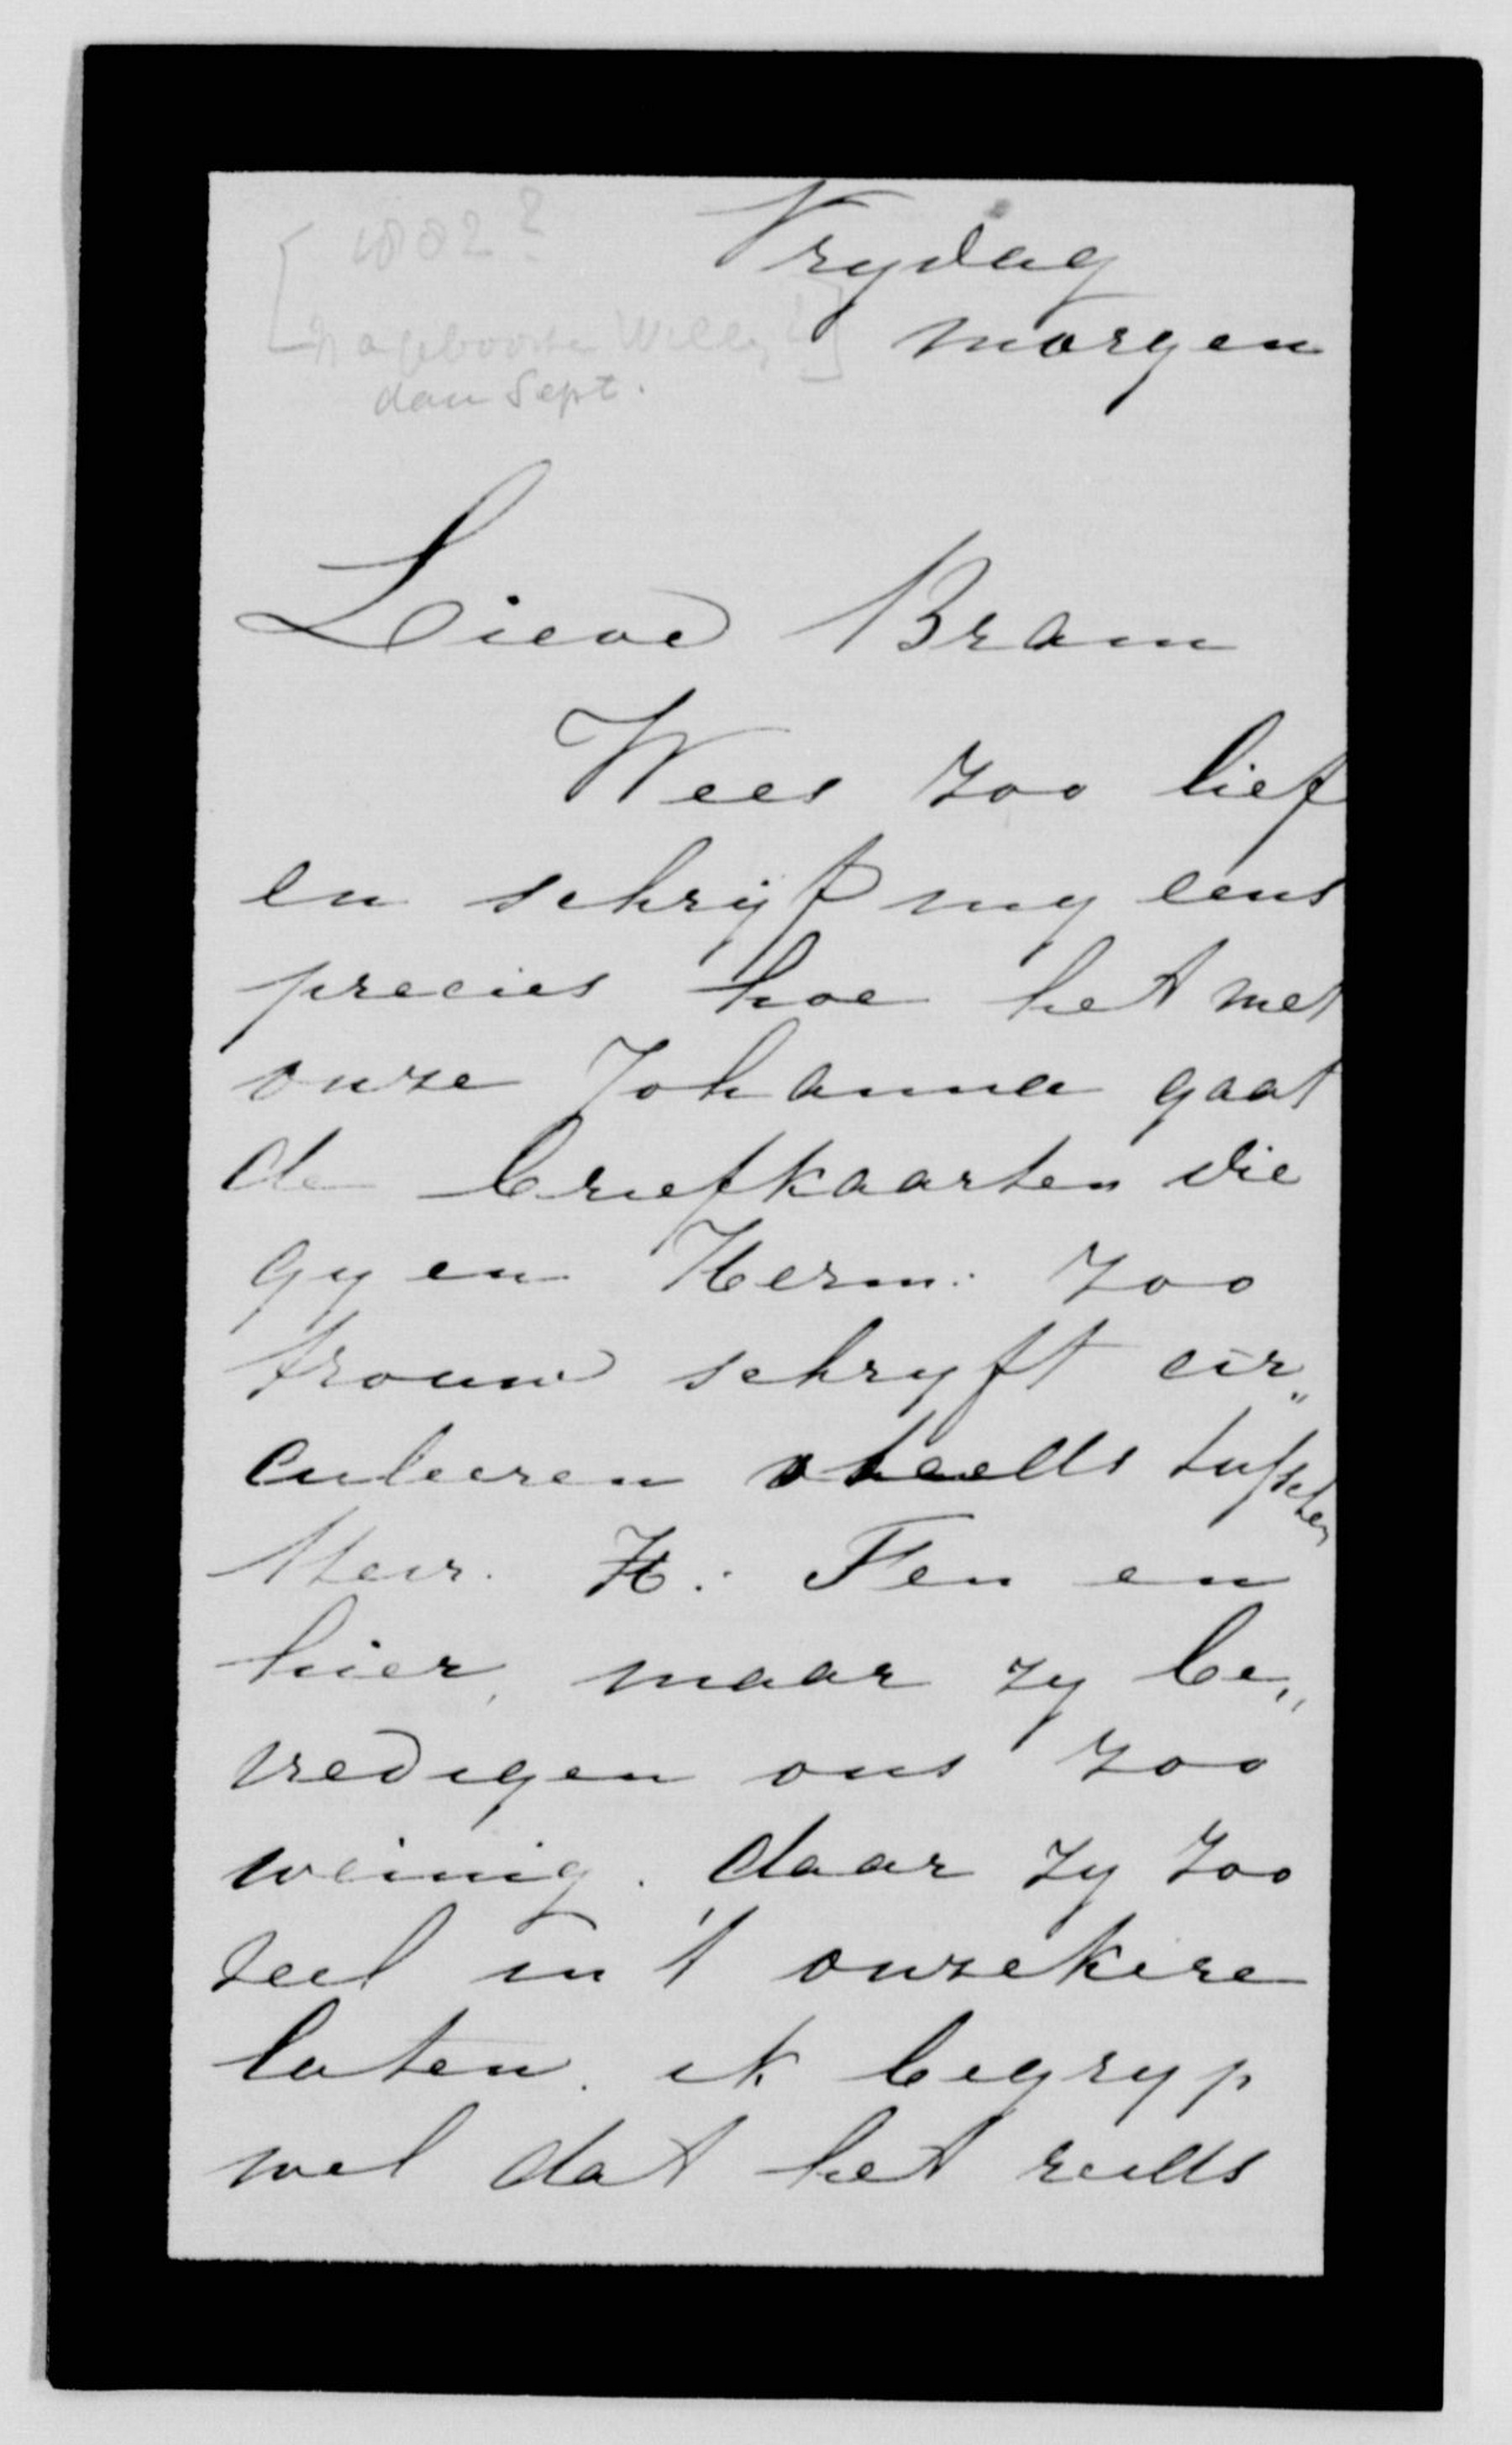 [1882?
Vrydag
na geboorte Willy?]
morgen
dan Sept.
Lieve Bram
Wees zoo lief
en schryf my eens
precies hoe het met
onze Johanna gaat
de briefkaarten die
gy en Herm: zoo
trouw schryft cir„
culeeren steeds tusschen
H: Fen en
hier, maar zy be„
vredigen ons zoo
weinig. daar zy zoo
veel in 't onzekere
laten. ik begryp
wel dat het reeds